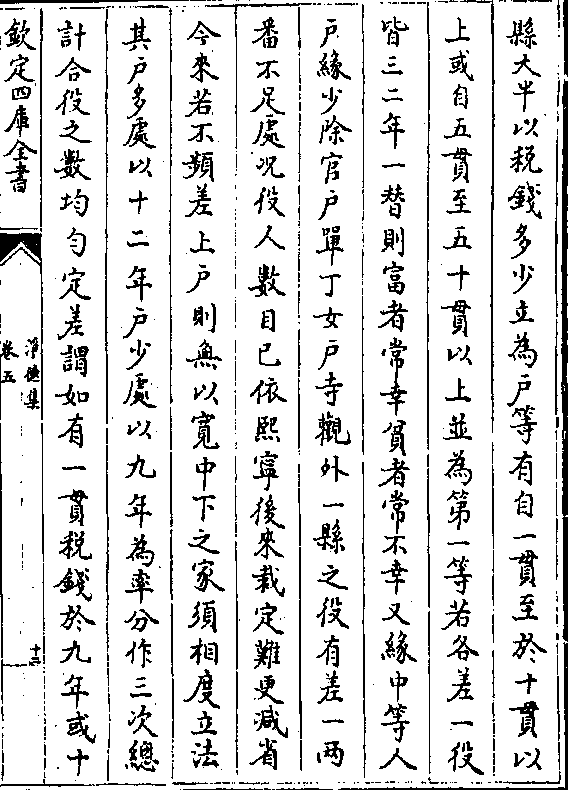 縣大半以税錢多少立為戶等有自一貫至於十貫以
上或自五貫至五十貫以上並為第一等若各差一役
皆三二年一替則富者常幸貧者常不幸又緣中等人
戶緣少除官戶單丁女戶寺觀外一縣之役有差一兩
番不足處况役人數目已依熙寧後來裁定難更減省
今來若不頻差上戶則無以寬中下之家須相度立法
其戶多處以十二年戶少處以九年為率分作三次總
計合役之數均勻定差謂如有一貫税錢於九年或十
欽定四庫全書
淨德集
卷五
十三